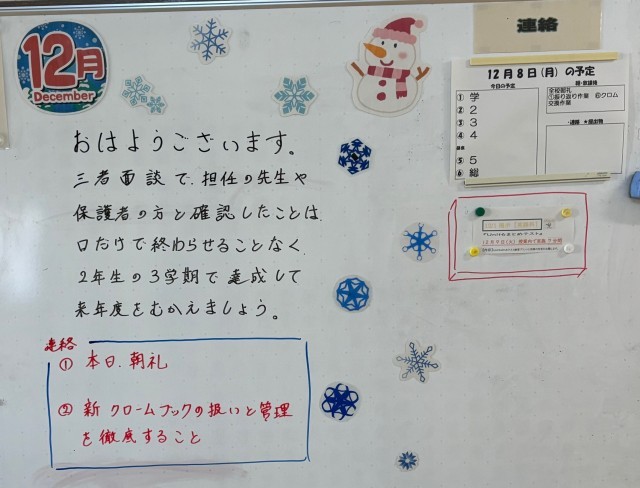 12月
December
おはようございます。
三者面談で、担任の先生や
保護者の方と確認したことは、
口だけで終わらせることなく、
2年生の3学期で達成して
来年度をむかえましょう。
連絡
① 本日、朝礼
② 新クロームブックの扱いと管理
を徹底すること
連絡
12月8日(月)の予定
今日の予定
① 学
② 2
③ 3
④ 4
⑤ 5
⑥ 総
全校朝礼
①振り返り作業 ⑥クロム
交換作業
・連絡 ★提出物